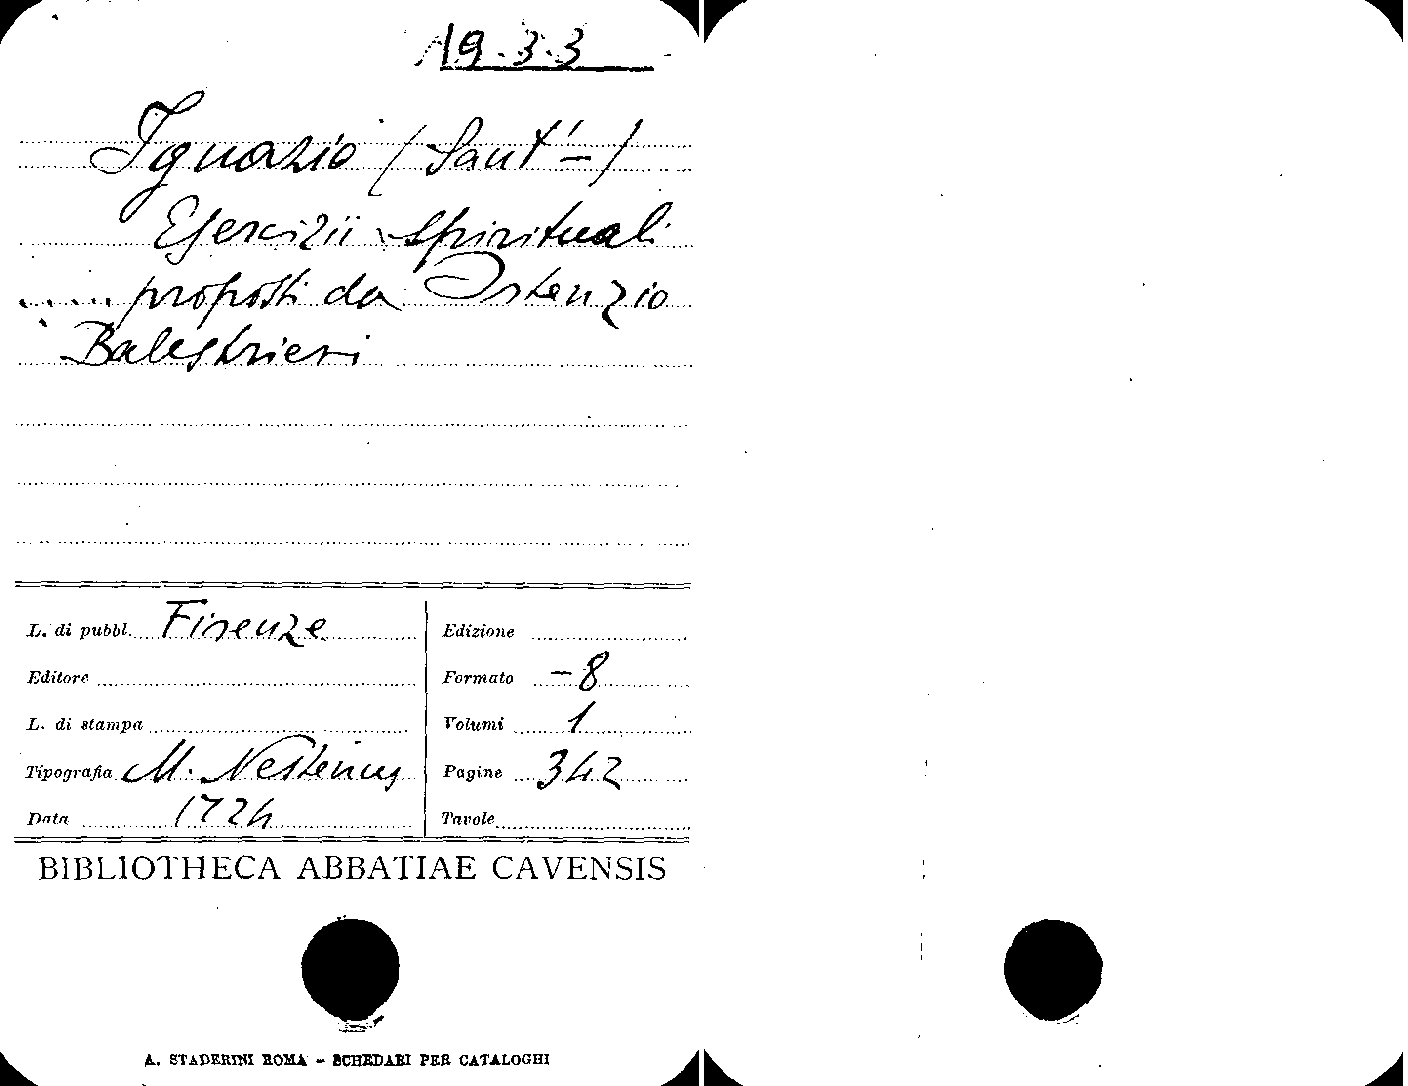 19.3.3
Ignazio (Sant'-)
Esercizii spirituali
..... proposti da Ostenzio
Balestrieri
L. di pubbl. Firenze
Editore
L. di stampa
Tipografia M. Nestenus
Data 1724
Edizione
Formato -8
Volumi 1
Pagine 342
Tavole
BIBLIOTHECA ABBATIAE CAVENSIS
A. STADERINI ROMA - SCHEDARI PER CATALOGHI